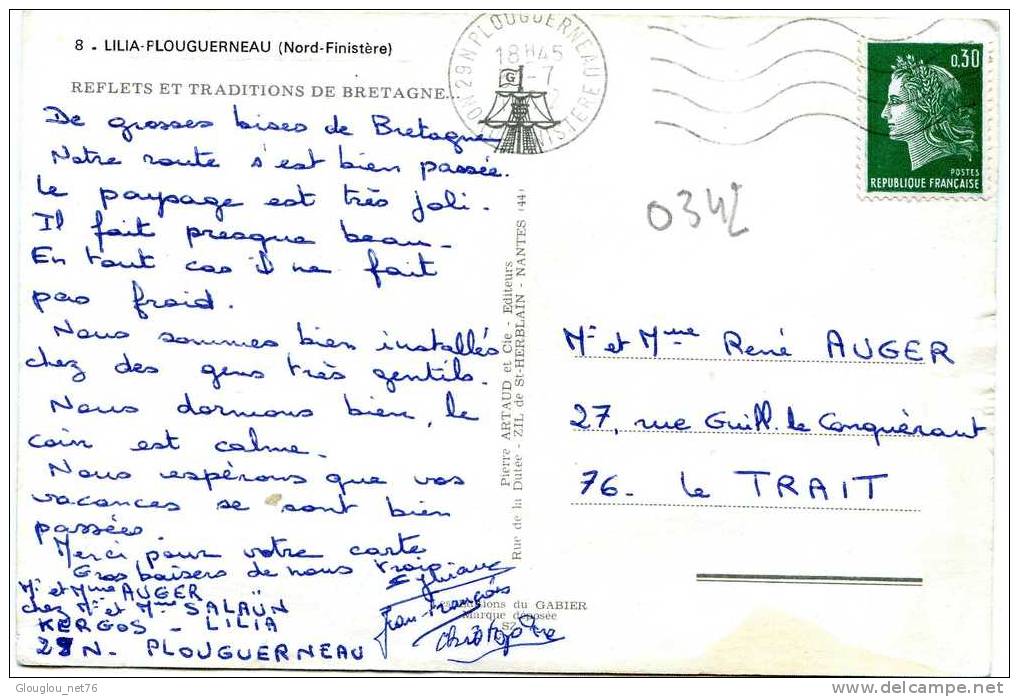 8 - LILIA-PLOUGUERNEAU (Nord-Finistère)
REFLETS ET TRADITIONS DE BRETAGNE...
De grosses bises de Bretagne
Notre route s'est bien passée.
Le paysage est très joli.
Il fait presque beau-
En tout cas il ne fait
pas froid.
Nous sommes bien installés
chez des gens très gentils.
Nous dormons bien, le
coin est calme.
Nous espérons que vos
vacances se sont bien
passées.
Merci pour votre carte
Gros baisers de nous trois
Sylviane
Jean-François
Christophe
Mr et Mme AUGER
chez Mr et Mme SALAÜN
KERGOS - LILIA
29N - PLOUGUERNEAU
Pierre ARTAUD et Cie - Editeurs
Rue de la Dutée - ZIL de St-HERBLAIN - NANTES (44)
du GABIER
Marque déposée
29N PLOUGUERNEAU
18H45
-7
G
0,30
POSTES
REPUBLIQUE FRANÇAISE
0342
Mr et Mme René AUGER
27, rue Guill. le Conquérant
76- Le TRAIT
Glouglou_net76
delcampe.net